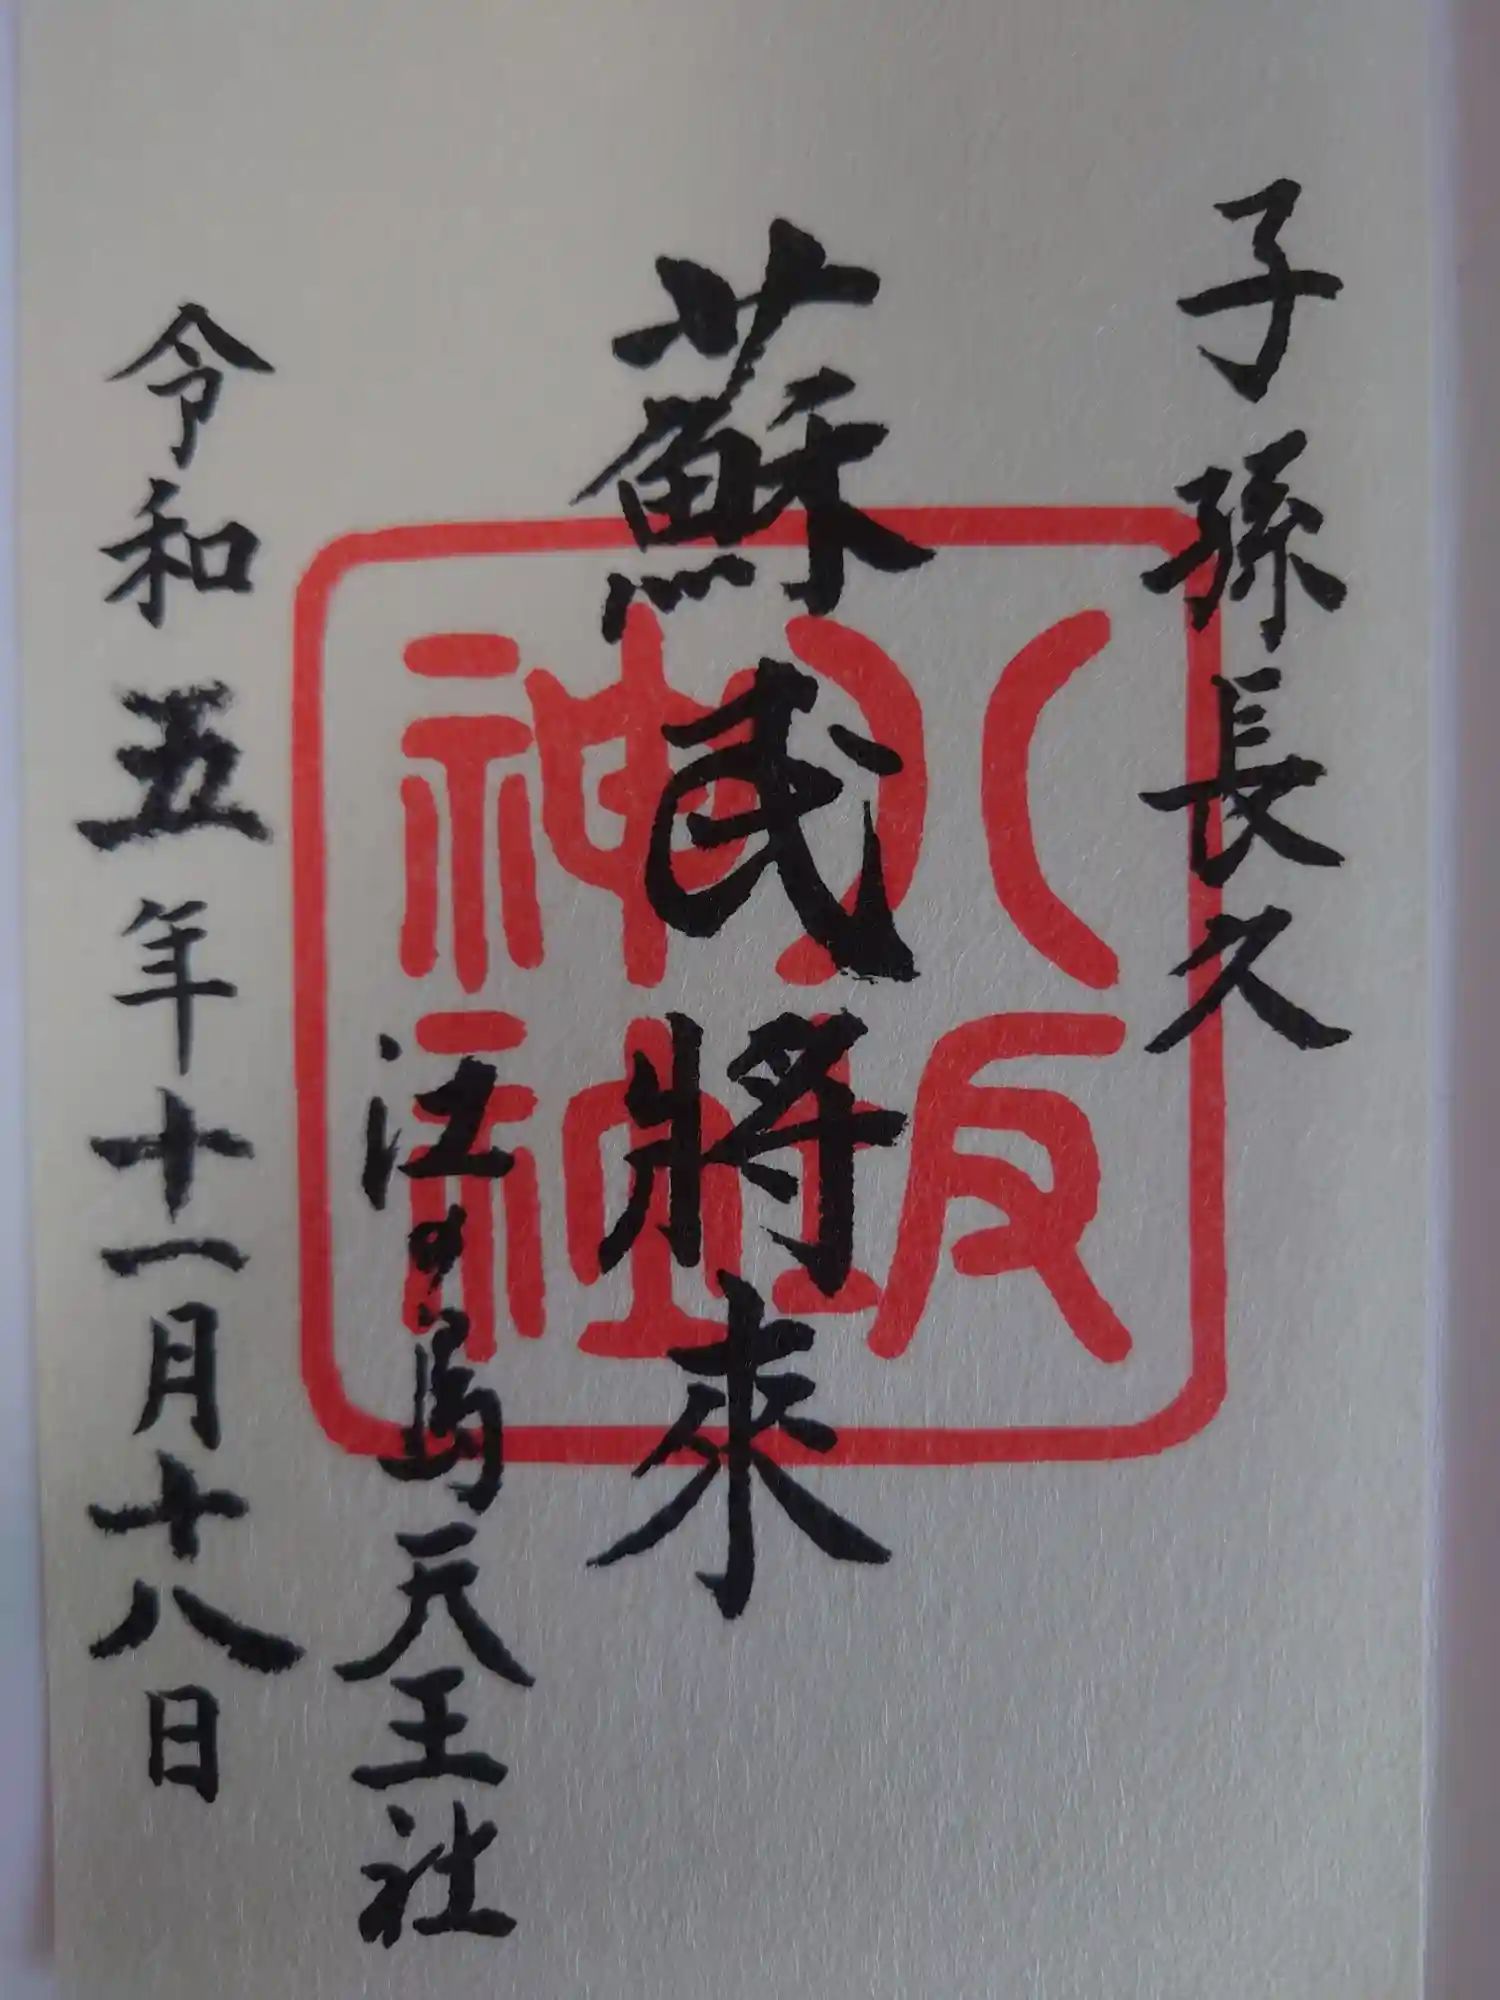 子孫長久
蘇民將来
八坂
神社
江の島天王社
令和五年十一月十八日